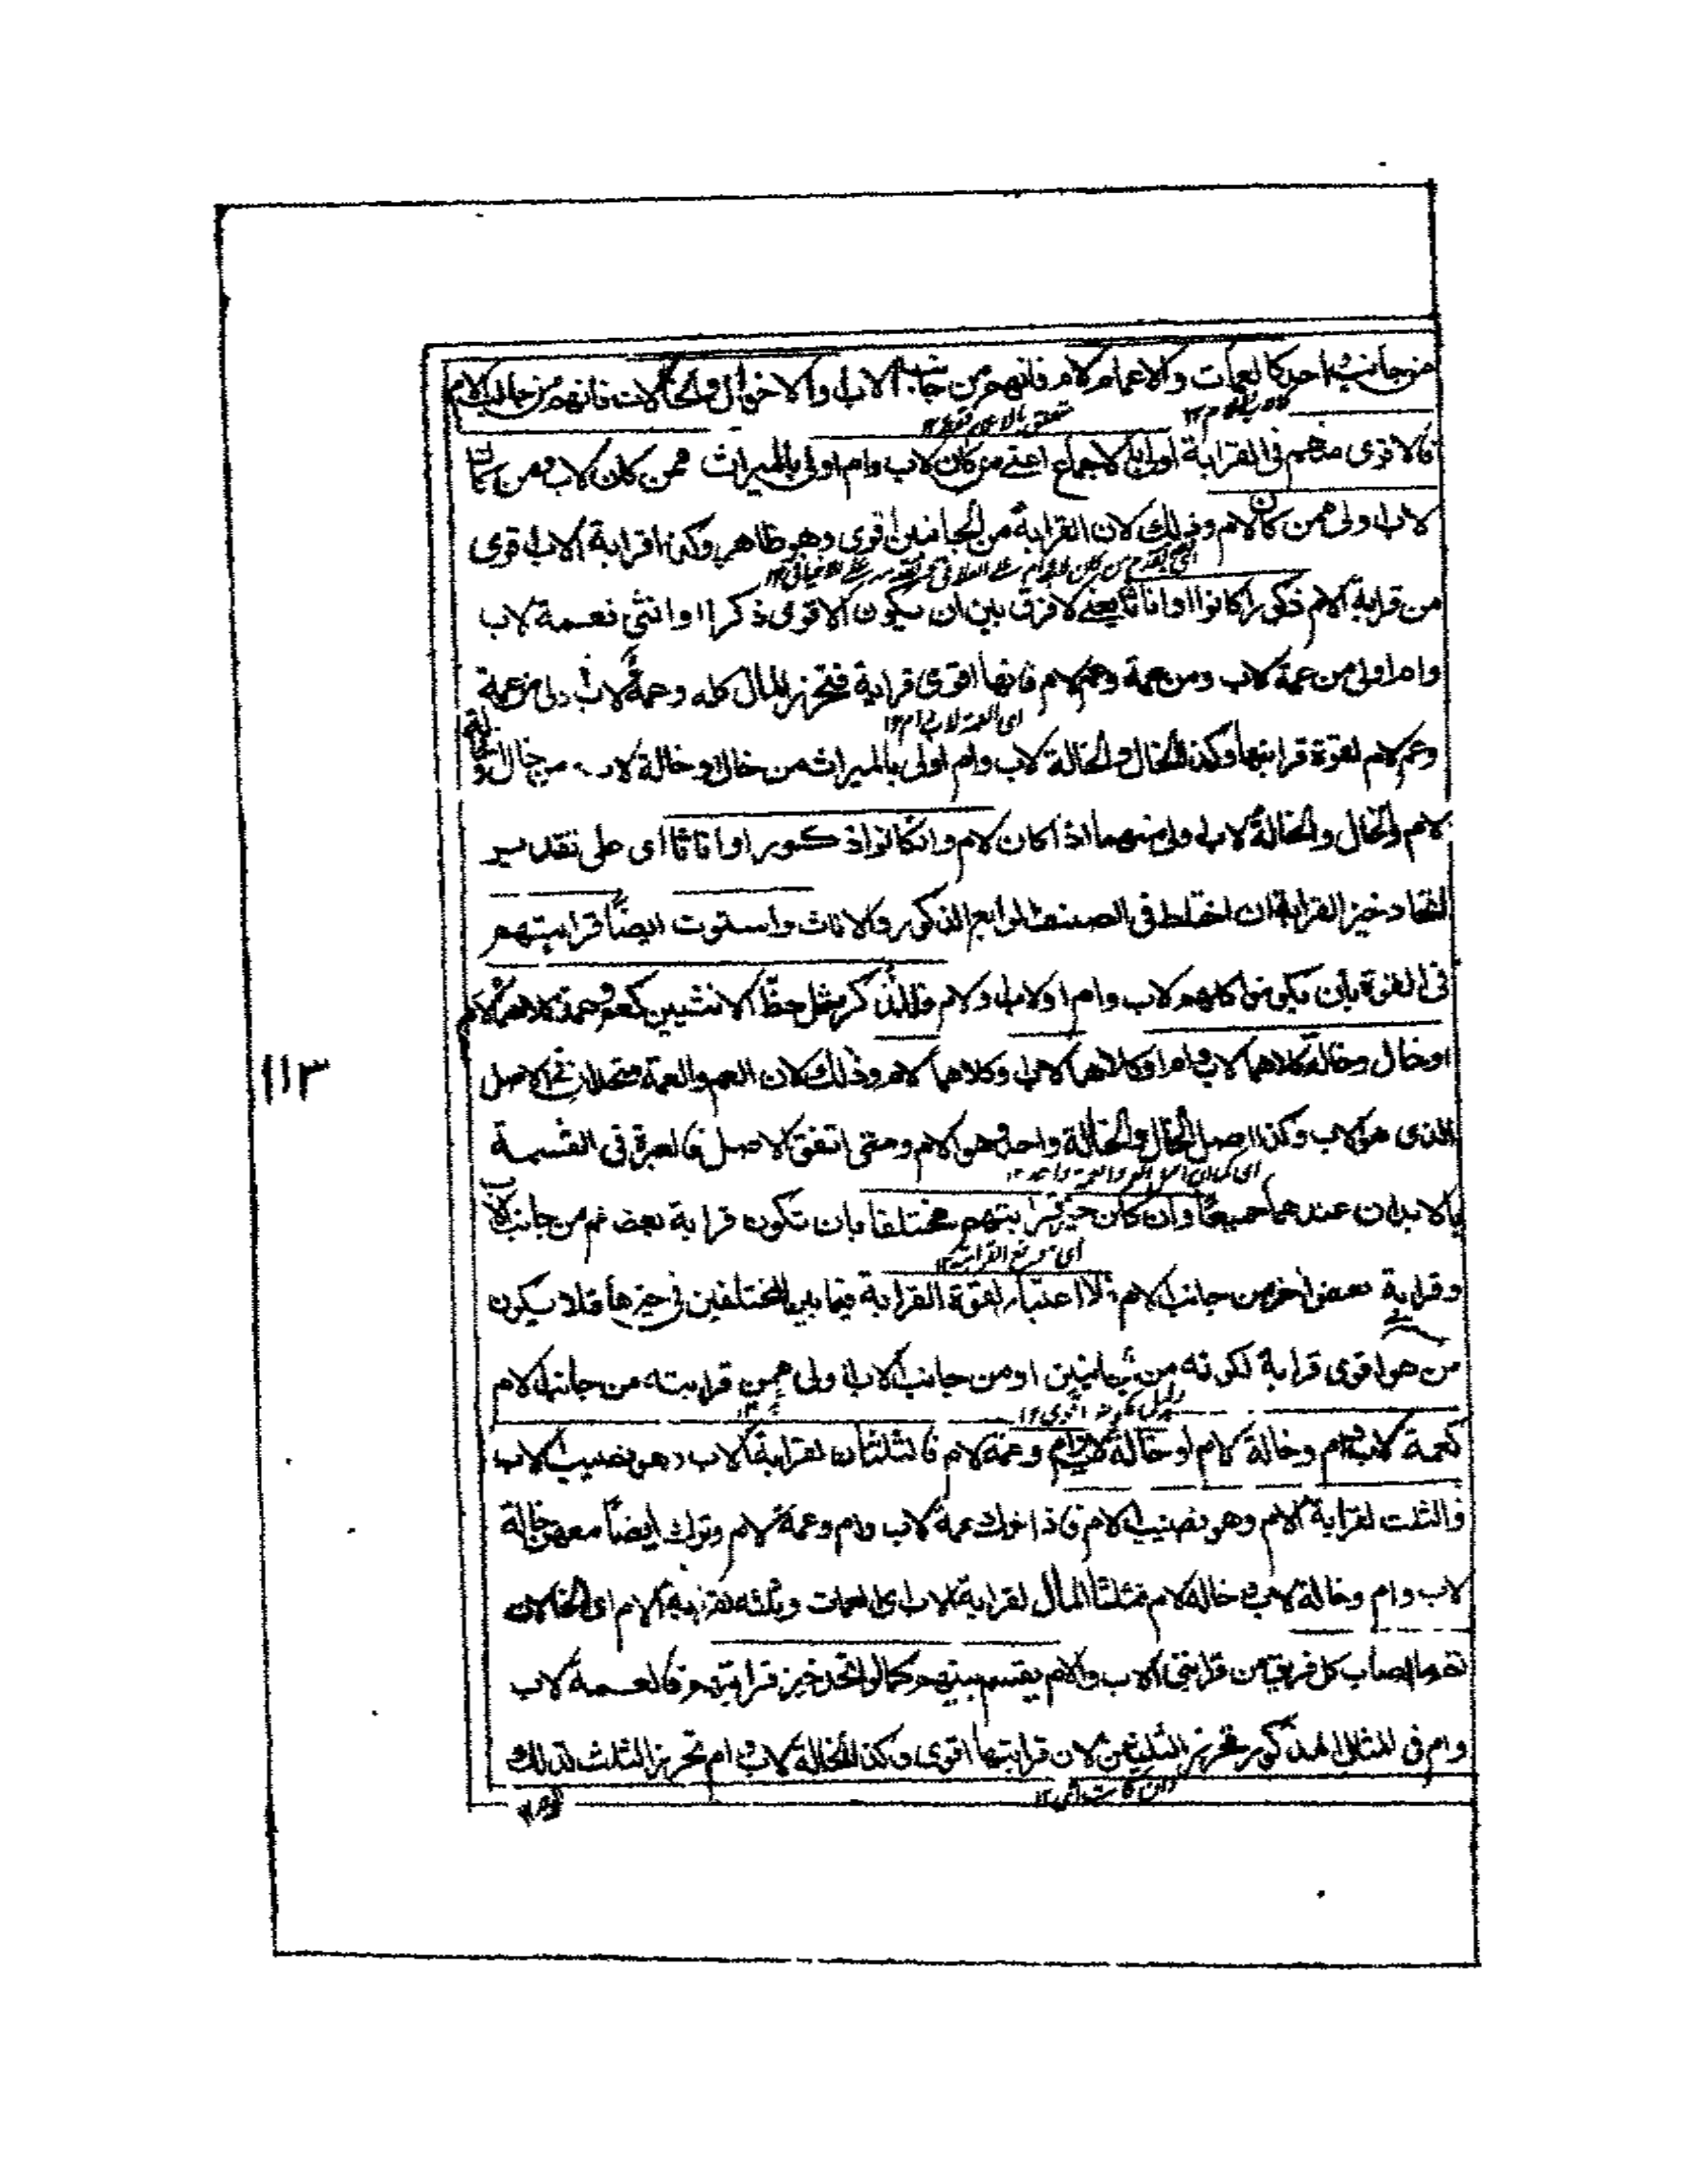 من جانب واحد كالعمات والاعمام لام فانهم من جانب الاب والاخوال والخالات فانهم من جانب الام
فالاقوى منهم فى القرابة اولى بالاجماع اعنى من كان لاب وام اولى بالميراث ممن كان لاب ومن كان
لاب اولى ممن كان لام وذلك لان القرابة من الجانبين اقوى وهو ظاهر وكذا قرابة الاب اقوى
من قرابة الام ذكورا كانوا او اناثا يعنى لا فرق بين ان يكون الاقوى ذكرا او انثى فعمة لاب
وام اولى من عمة لاب ومن عمة وعم لام فانها اقوى قرابة فتحرز المال كله وعمة لاب اولى من عمة
وعم لام لقوة قرابتها وكذا الخال والخالة لاب وام اولى بالميراث من خال او خالة لاب من خال وخالة
اى العمة لاب وام ١٢
لام والخال والخالة لاب اولى منهما اذا كان لام وان كانوا ذكورا او اناثا اى على تقدير
اتحاد حيز القرابة ان اختلط فى الصنف الرابع الذكور والاناث واستوت ايضاً قرابتهم
فى القوة بأن يكونوا كلهم لاب وام او لاب او لام فللذكر مثل حظ الانثيين كعم وعمة كلاهما لام
او خال وخالة كلاهما لاب وام او كلاهما لاب وكلاهما لام وذلك لان العم والعمة متحدان فى الاصل
الذى هو الاب وكذا اصل الخال والخالة واحد وهو الام ومتى اتفق الاصل فالعبرة فى القسمة
بالابدان عندهما جميعاً وان كان حيز قرابتهم مختلفا بان تكون قرابة بعضهم من جانب الاب
وقرابة بعض اخر من جانب الام فلا اعتبار لقوة القرابة فيما بين المختلفين فى حيزها فلا يكون
من هو اقوى قرابة لكونه من الجانبين او من جانب الاب اولى ممن قرابته من جانب الام
كعمة لاب وام وخالة لام او خالة لاب وام وعمة لام فالثلثان لقرابة الاب وهو نصيب الاب
والثلث لقرابة الام وهو نصيب الام فاذا ترك عمة لاب وام وعمة لام وترك ايضاً معهن خالة
لاب وام وخالة لاب وخالة لام فثلثا المال لقرابة الاب اى العمات وثلثه لقرابة الام اى الخالات
ثم ما اصاب كل فريق من قرابتى الاب والام يقسم بينهم كما لو اتحد حيز قرابتهم فالعمة لاب
وام فى المثال المذكور تحرز الثلثين لان قرابتها اقوى وكذا الخالة لاب وام تحرز الثلث لذلك
١١٣